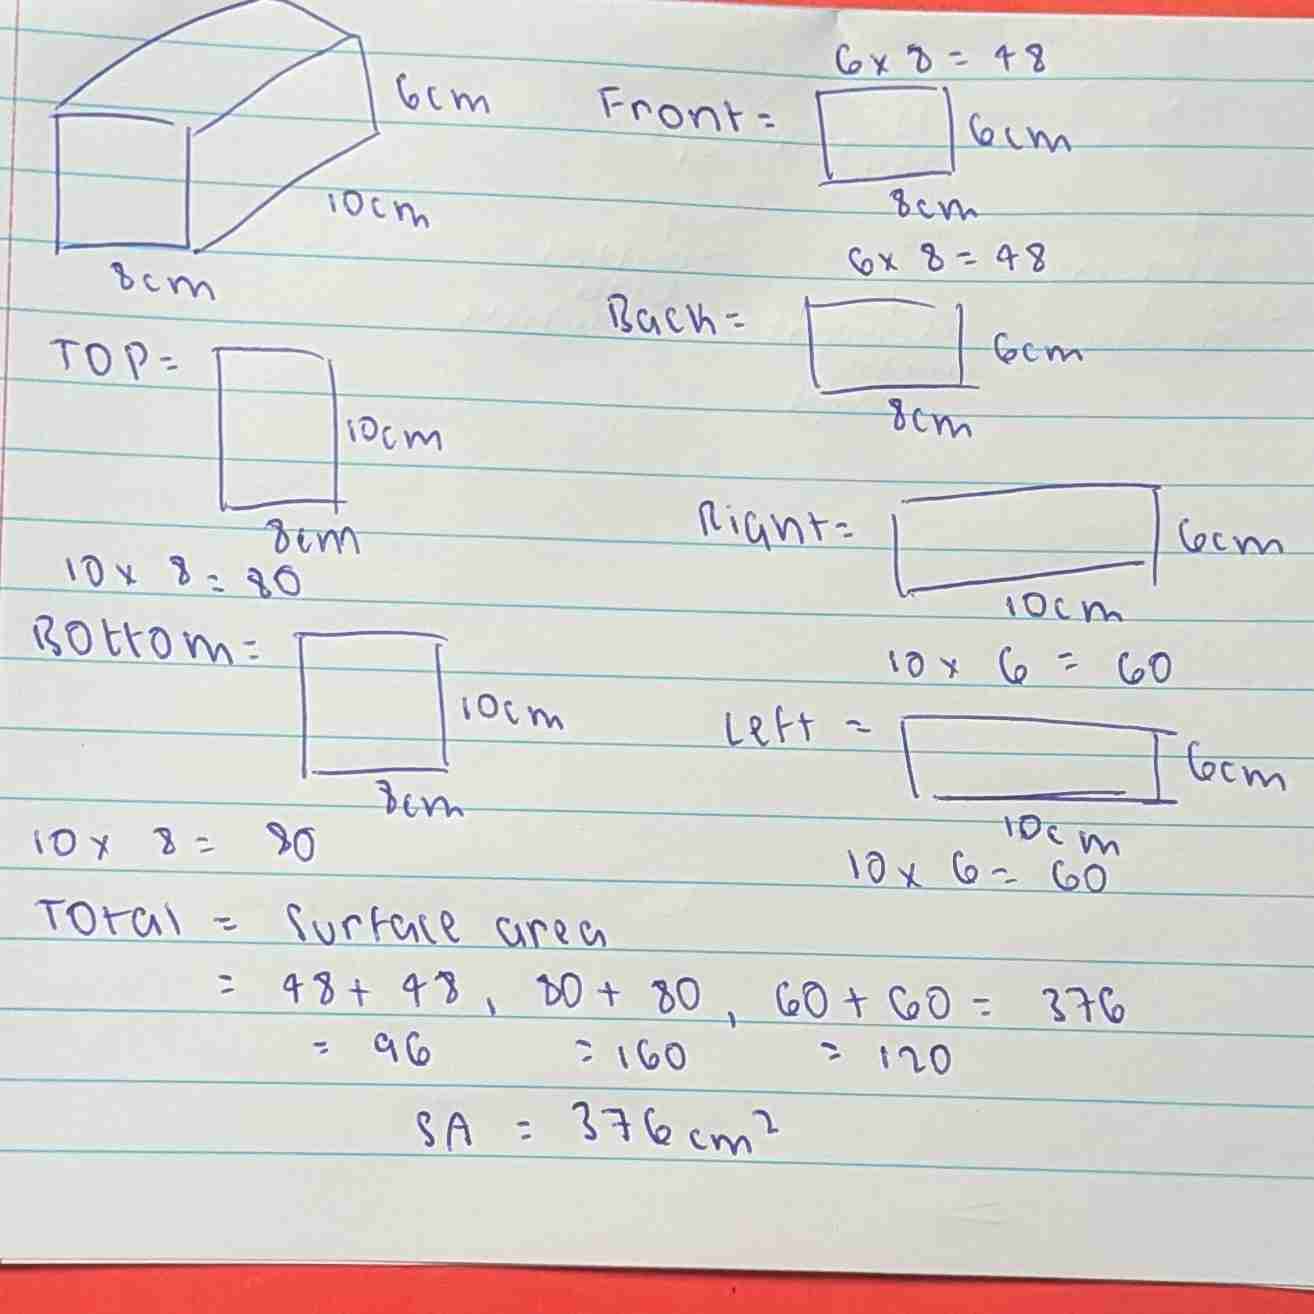 6cm
10cm
8cm
6 x 8 = 48
Front =
6cm
8cm
6 x 8 = 48
Back =
6cm
8cm
TOP =
10cm
8cm
10 x 8 = 80
Right =
6cm
10cm
10 x 6 = 60
Bottom =
10cm
8cm
10 x 8 = 80
Left =
6cm
10cm
10 x 6 = 60
Total = Surface area
= 48 + 48, 80 + 80, 60 + 60 = 376
= 96 = 160 = 120
SA = 376 cm²